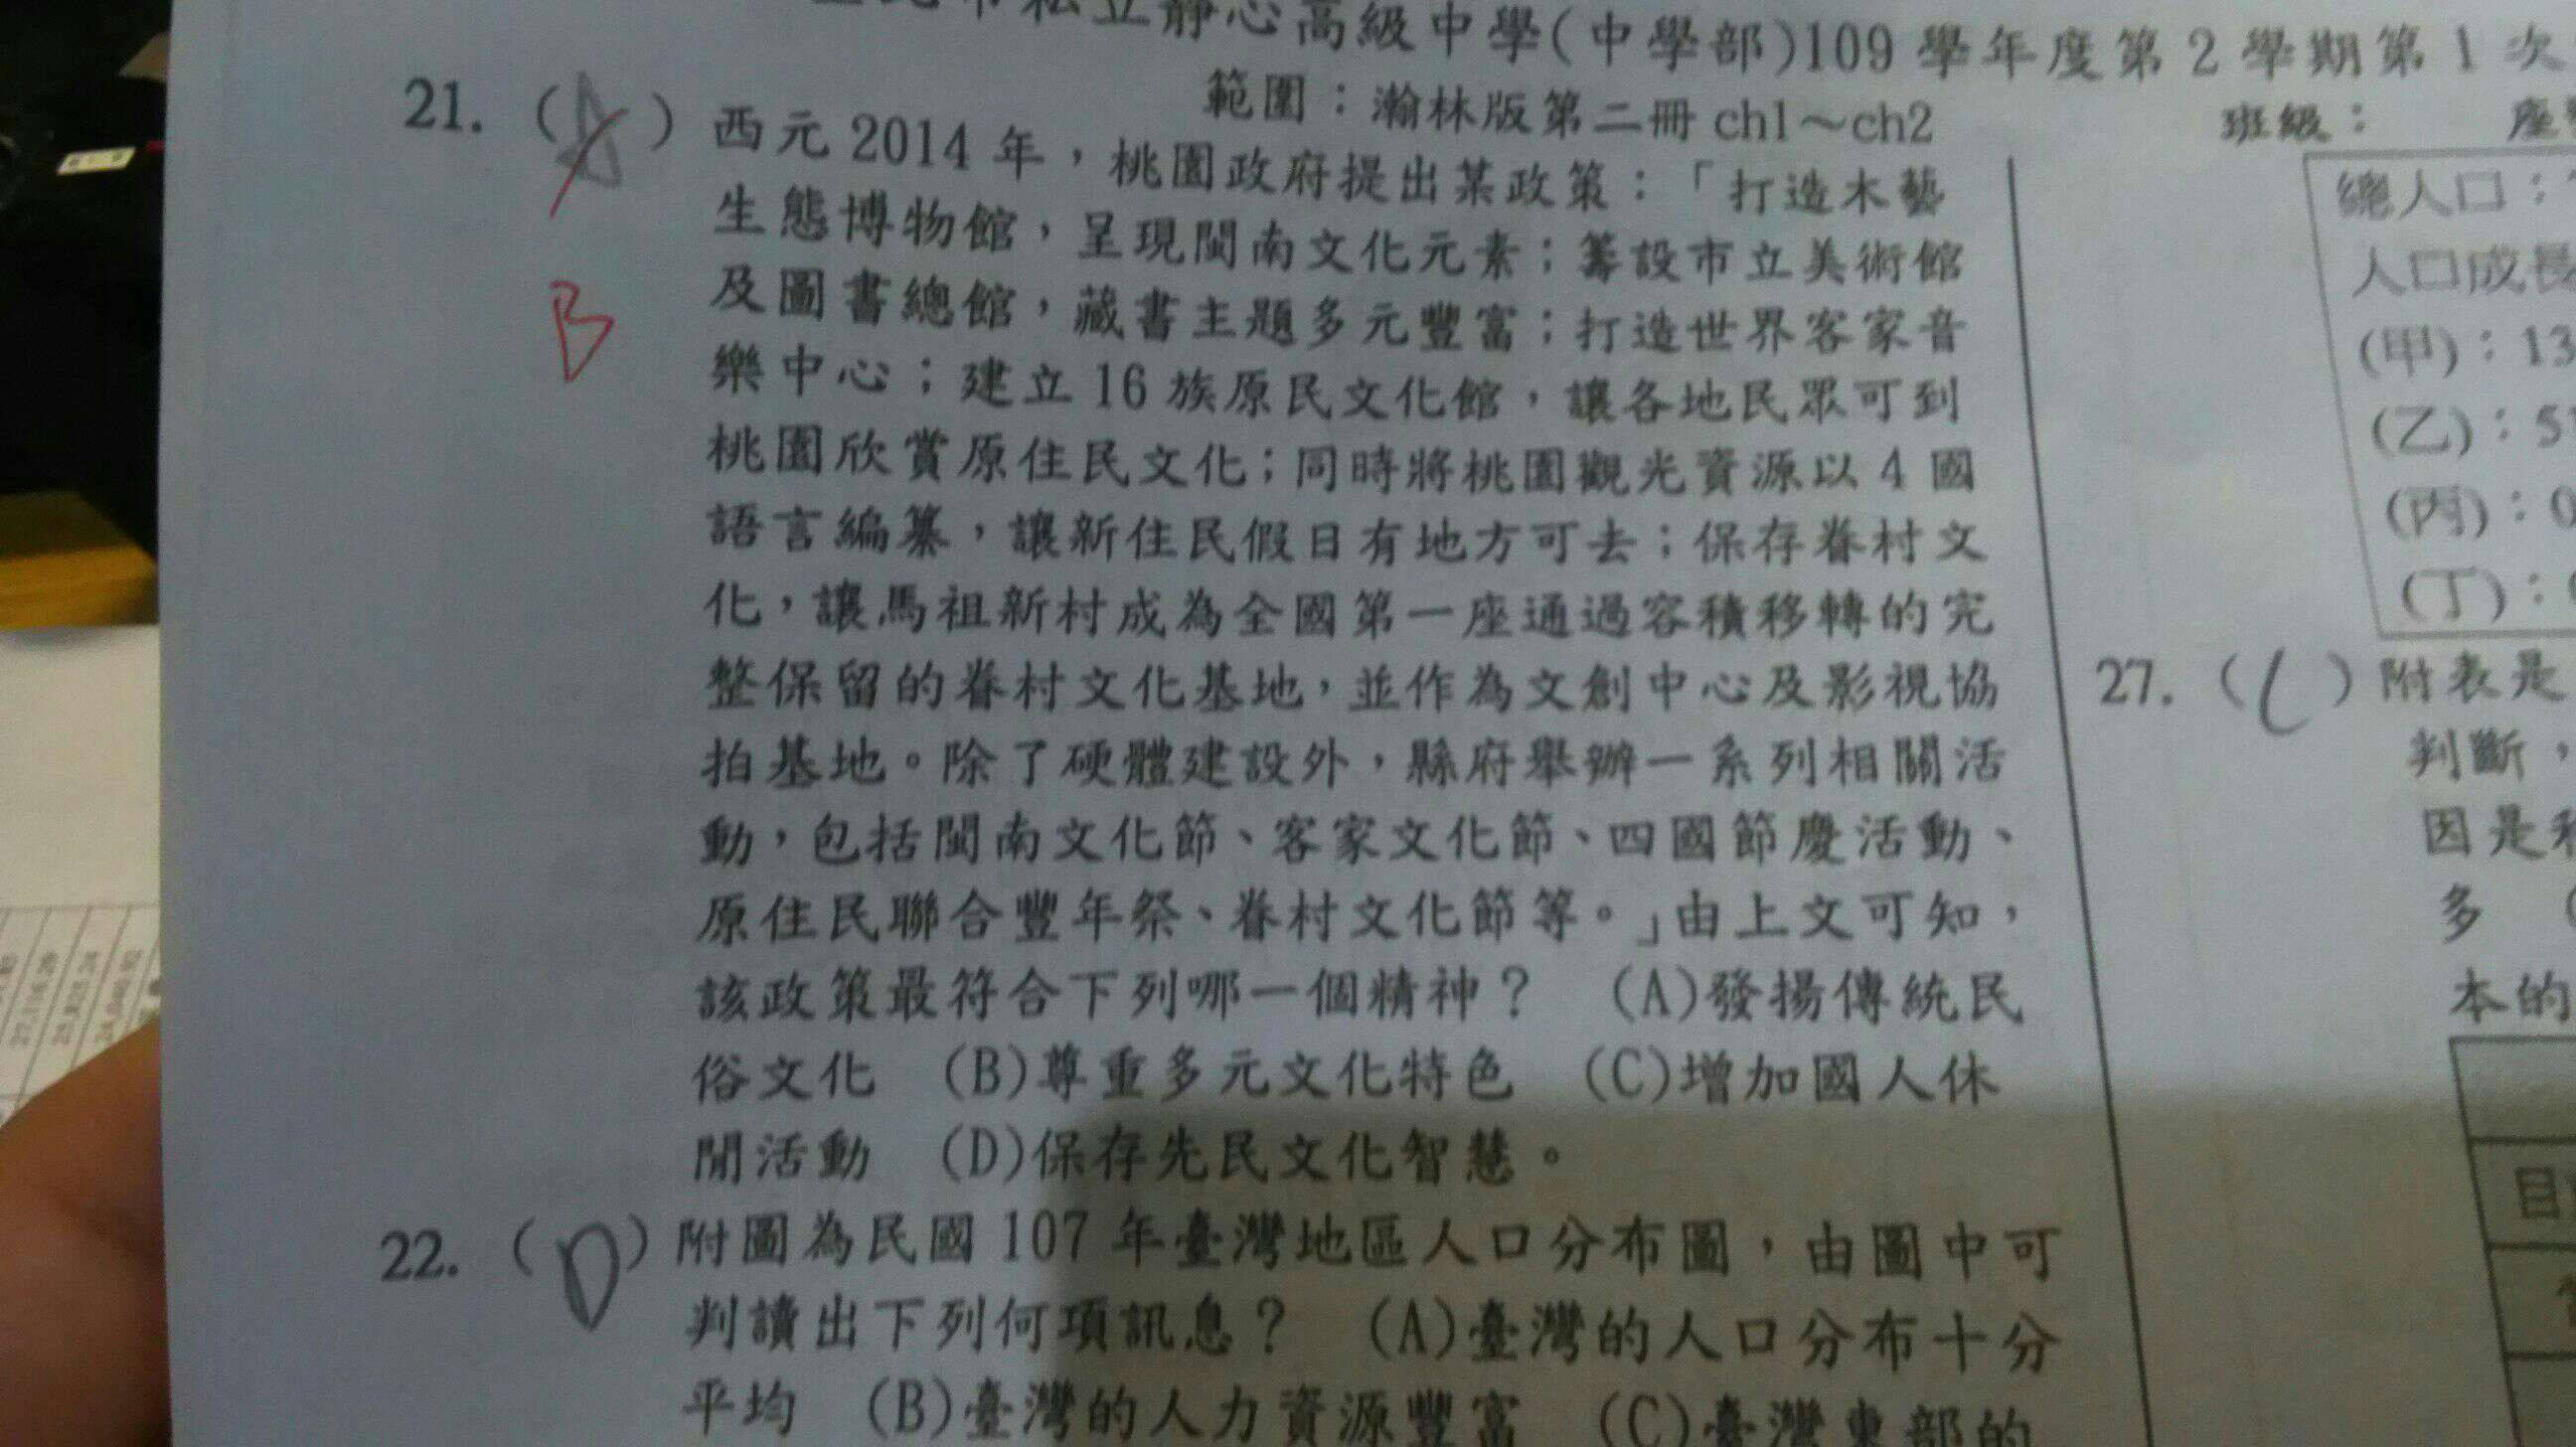 私立靜心高級中學(中學部)109學年度第2學期第1次
範圍：瀚林版第二冊 ch1～ch2
班級： 座
21. (A) 西元2014年，桃園政府提出某政策：「打造木藝
B
生態博物館，呈現閩南文化元素；籌設市立美術館
及圖書總館，藏書主題多元豐富；打造世界客家音
樂中心；建立16族原民文化館，讓各地民眾可到
桃園欣賞原住民文化；同時將桃園觀光資源以4國
語言編纂，讓新住民假日有地方可去；保存眷村文
化，讓馬祖新村成為全國第一座通過容積移轉的完
整保留的眷村文化基地，並作為文創中心及影視協
拍基地。除了硬體建設外，縣府舉辦一系列相關活
動，包括閩南文化節、客家文化節、四國節慶活動、
原住民聯合豐年祭、眷村文化節等。」由上文可知，
該政策最符合下列哪一個精神？ (A)發揚傳統民
俗文化 (B)尊重多元文化特色 (C)增加國人休
閒活動 (D)保存先民文化智慧。
22. (D) 附圖為民國107年臺灣地區人口分布圖，由圖中可
判讀出下列何項訊息？ (A)臺灣的人口分布十分
平均 (B)臺灣的人力資源豐富 (C)臺灣東部的
總人口：
人口成長
(甲)：13
(乙)：5
(丙)：0
(丁)：
27. (C) 附表是
判斷，
因是
多
本的
目